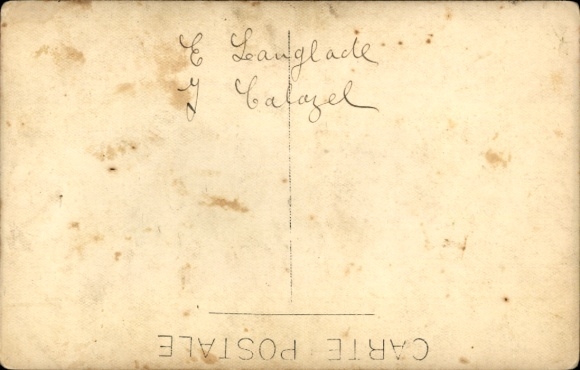 E Langlade
J Calazel
CARTE POSTALE